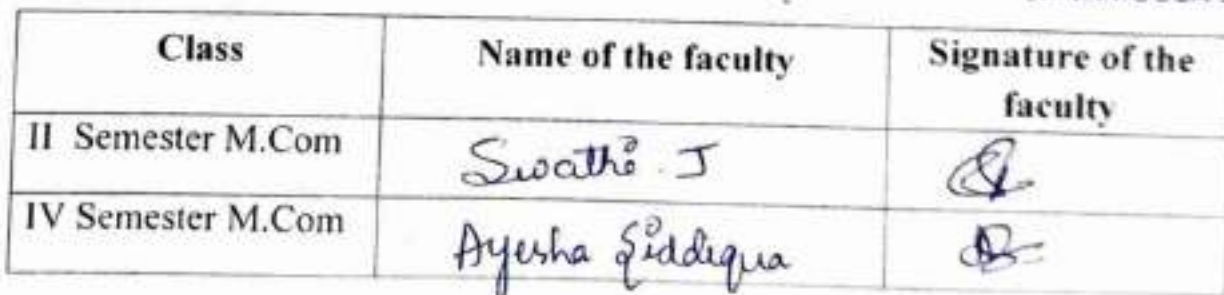 Class Name of the faculty Signature of the
faculty
II Semester M.Com Swathi . J
IV Semester M.Com Ayesha Siddiqua